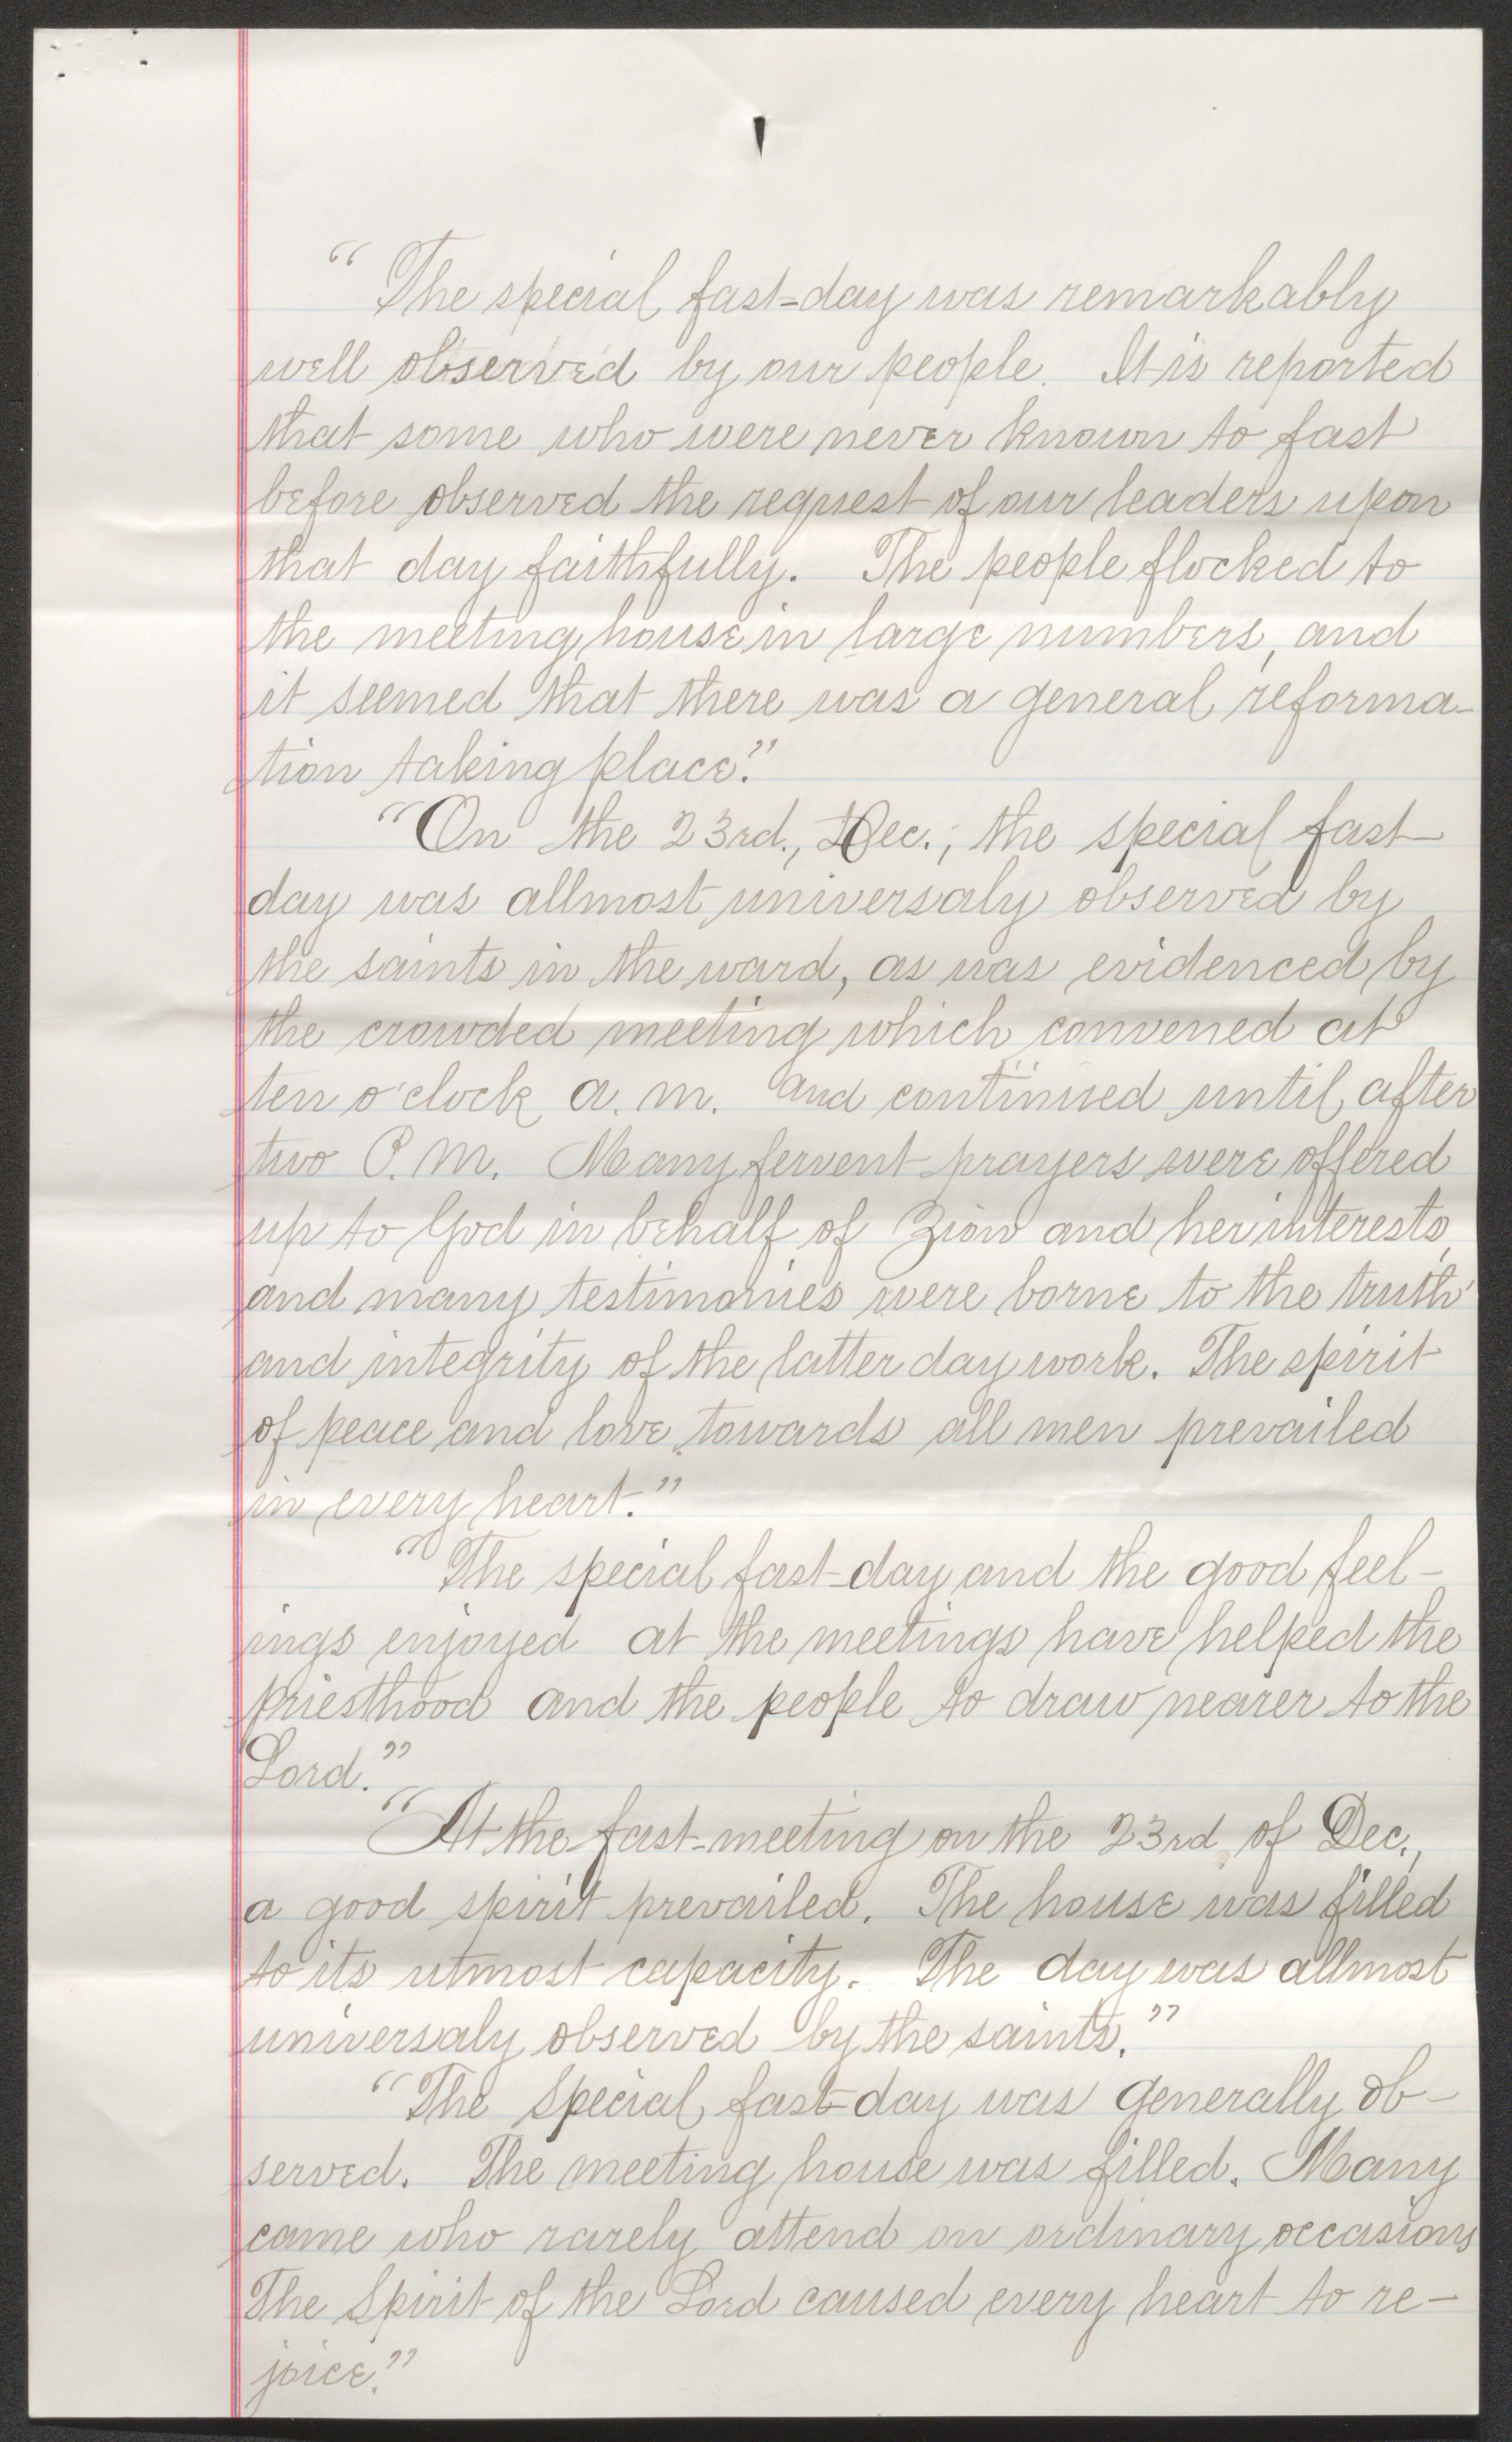 “The special fast-day was remarkably
well observed by our people. It is reported
that some who were never known to fast
before observed the request of our leaders upon
that day faithfully. The people flocked to
the meeting house in large numbers, and
it seemed that there was a general reforma-
tion taking place.”
“On the 23rd., Dec.; the special fast
day was allmost universaly observed by
the saints in the ward, as was evidenced by
the crowded meeting which convened at
ten o'clock a.m. and continued until after
two P.M. Many fervent prayers were offered
up to God in behalf of Zion and her interests,
and many testimonies were borne to the truth
and integrity of the latter day work. The spirit
of peace and love towards all men prevailed
in every heart.”
“The special fast-day and the good feel-
ings enjoyed at the meetings have helped the
priesthood and the people to draw nearer to the
Lord.”
“At the fast-meeting on the 23rd of Dec.,
a good spirit prevailed. The house was filled
to its utmost capacity. The day was allmost
universaly observed by the saints.”
“The special fast-day was generally ob-
served. The meeting house was filled. Many
came who rarely attend on ordinary occasions
The Spirit of the Lord caused every heart to re-
joice.”